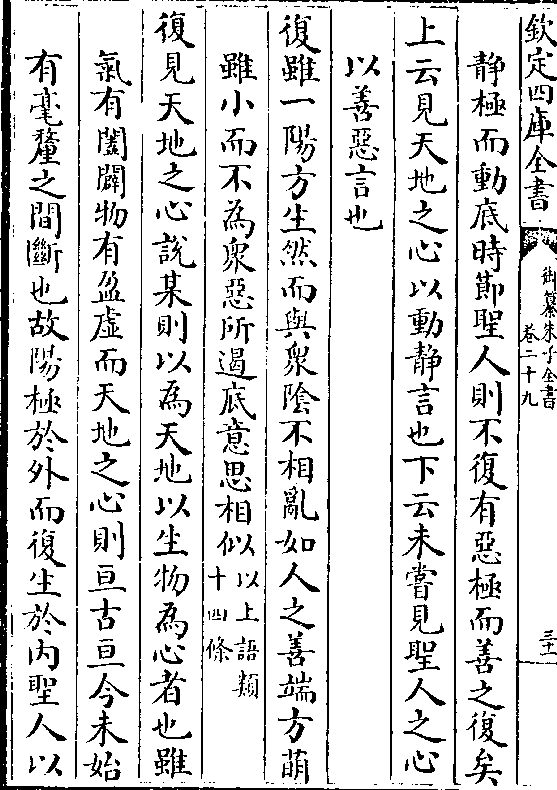 欽定四庫全書
御纂朱子全書
卷二十九
三十
静極而動底時節聖人則不復有惡極而善之復矣
上云見天地之心以動静言也下云未嘗見聖人之心
以善惡言也
復雖一陽方生然而與衆陰不相亂如人之善端方萌
雖小而不為衆惡所遏底意思相似以上語類十四條
復見天地之心說某則以為天地以生物為心者也雖
氣有闔闢物有盈虚而天地之心則亘古亘今未始
有毫釐之間斷也故陽極於外而復生於内聖人以